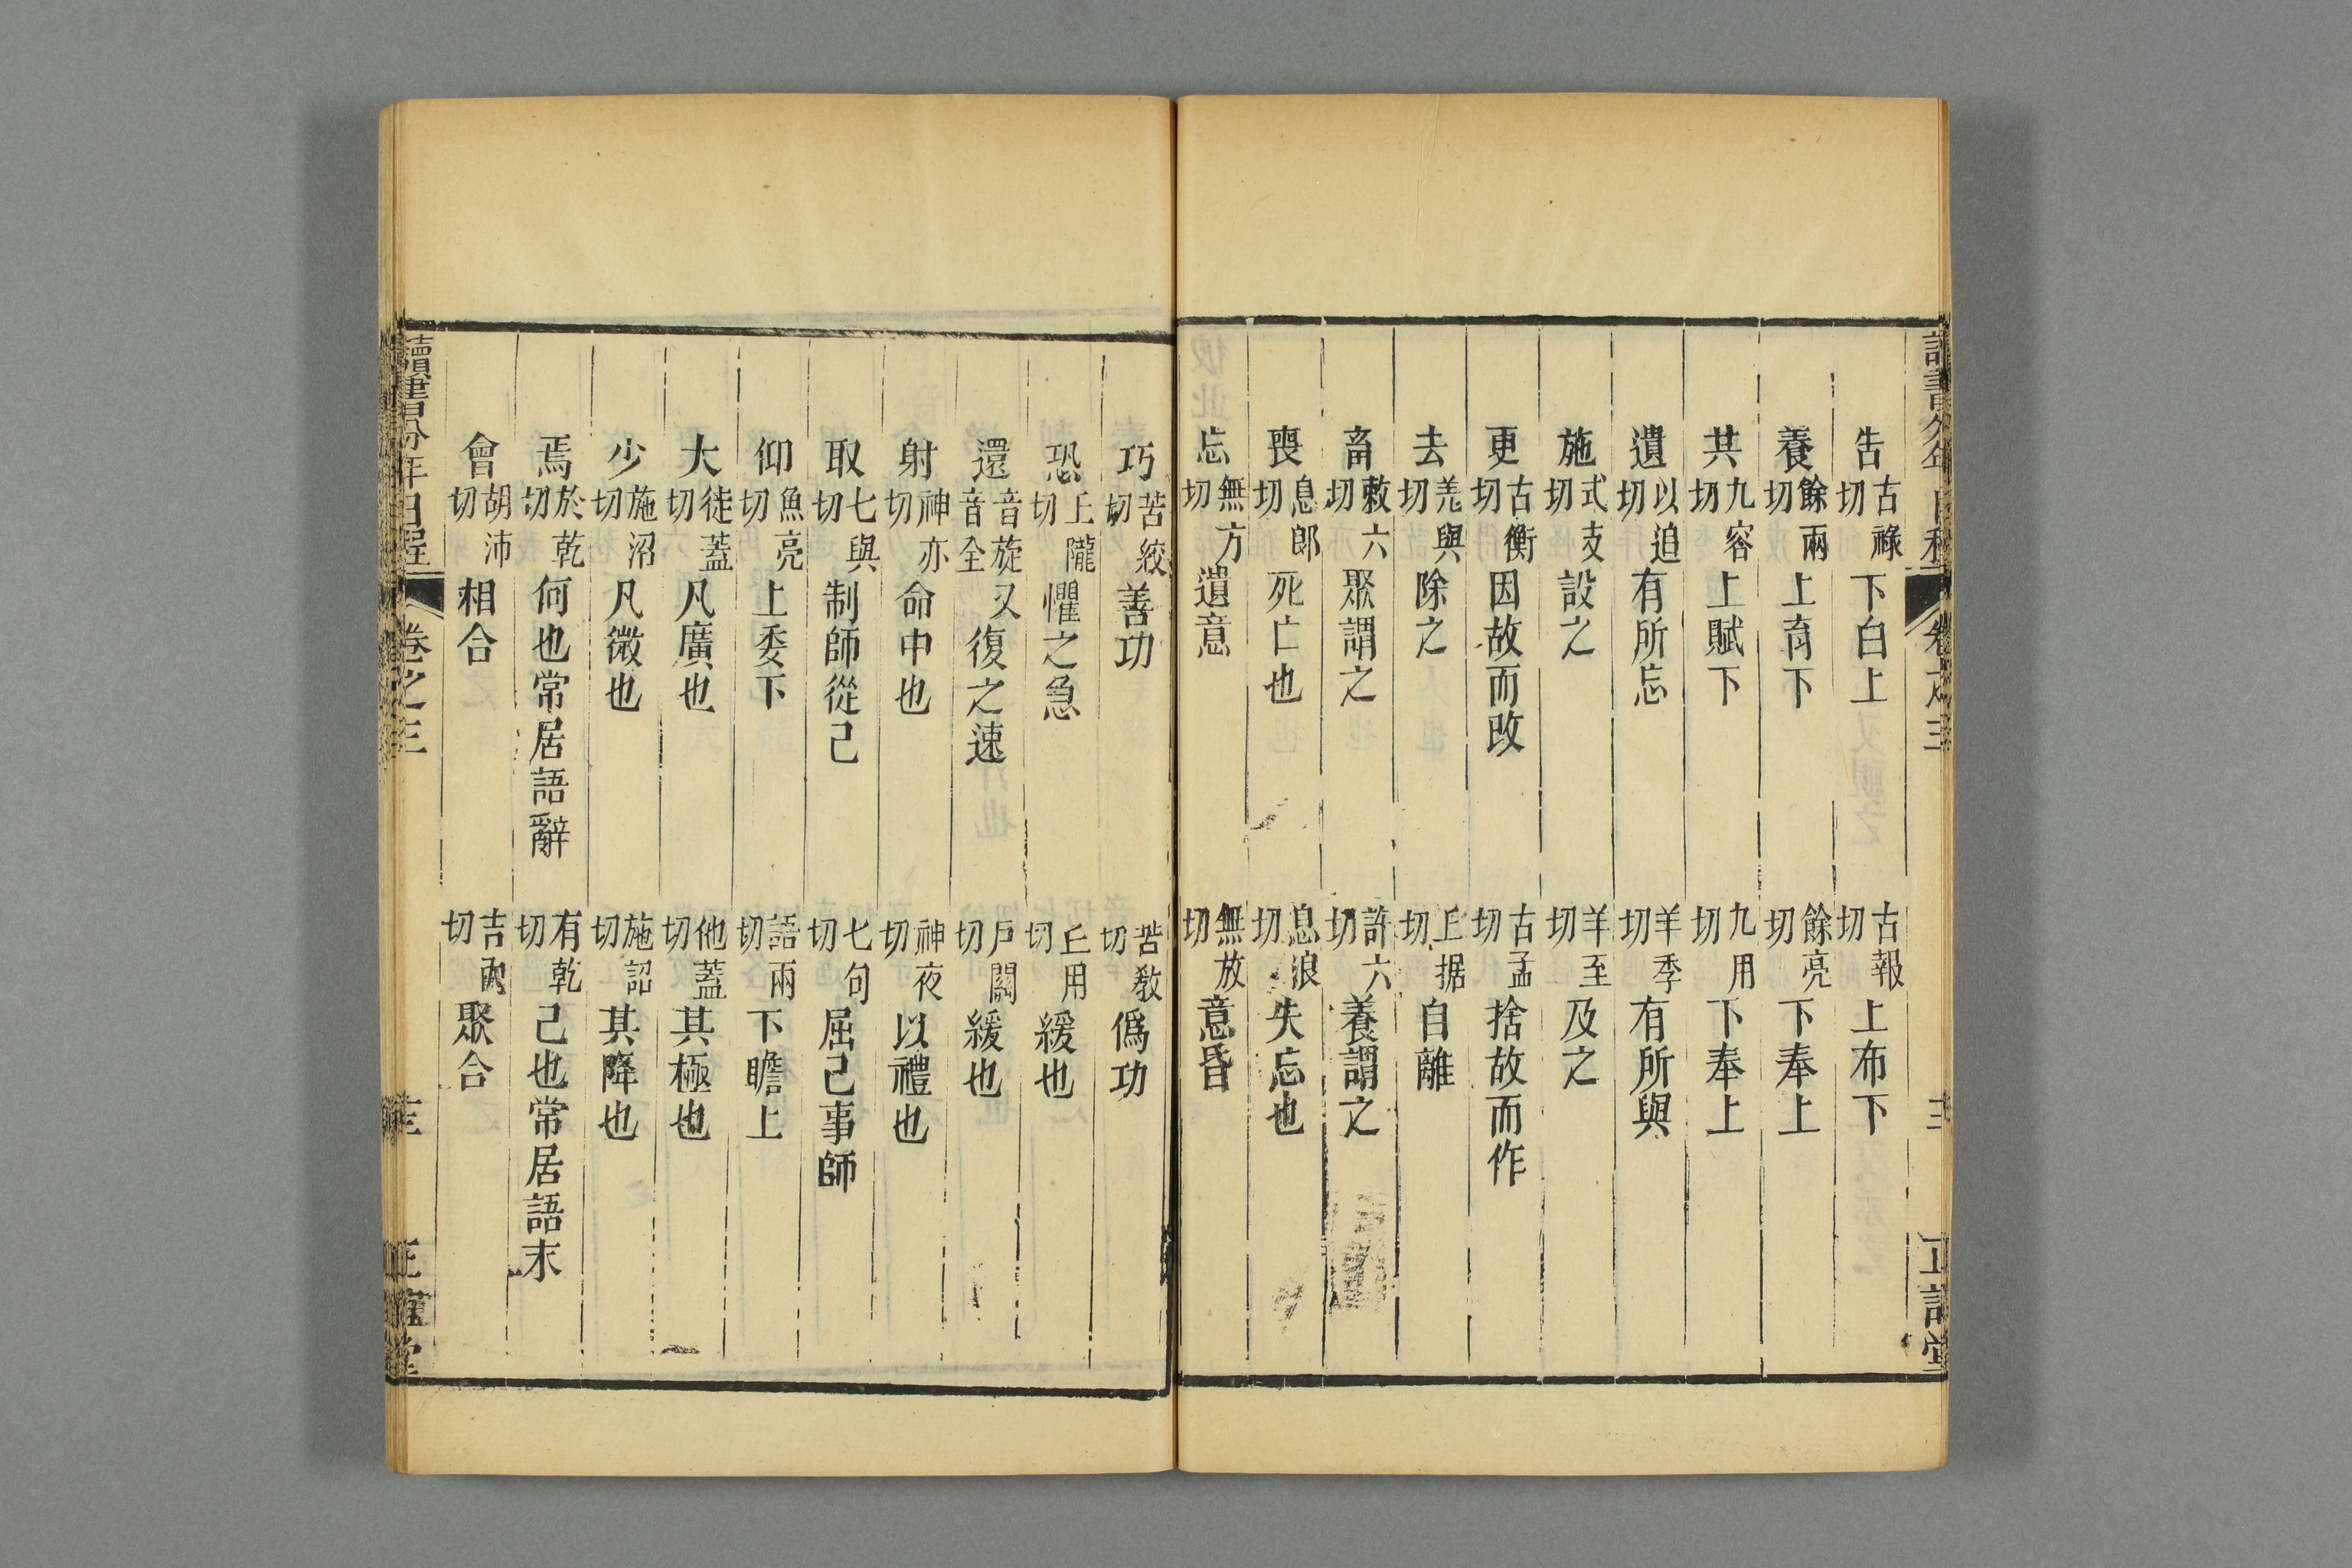 告古祿切下白上 古報切上布下
養餘兩切上育下 餘亮切下奉上
共九容切上賦下 九用切下奉上
遺以追切有所忘 羊季切有所與
施式支切設之 羊至切及之
更古衡切因故而改 古孟切捨故而作
去羌與切除之 丘据切自離
畜敕六切聚謂之 許六切養謂之
喪息郎切死亡也 息浪切失忘也
忘無方切遺意 無放切意昏
巧苦絞切善功 苦教切僞功
恐丘隴切懼之急 丘用切緩也
還音旋又音全復之速 戶關切緩也
射神亦切命中也 神夜切以禮也
取七與切制師從己 七句切屈己事師
仰魚亮切上委下 語兩切下瞻上
大徒蓋切凡廣也 他蓋切其極也
少施沼切凡微也 施詔切其降也
焉於乾切何也常居語辭 有乾切己也常居語末
會胡沛切相合 古兌切聚合
讀書分年日程 卷之三 正誼堂